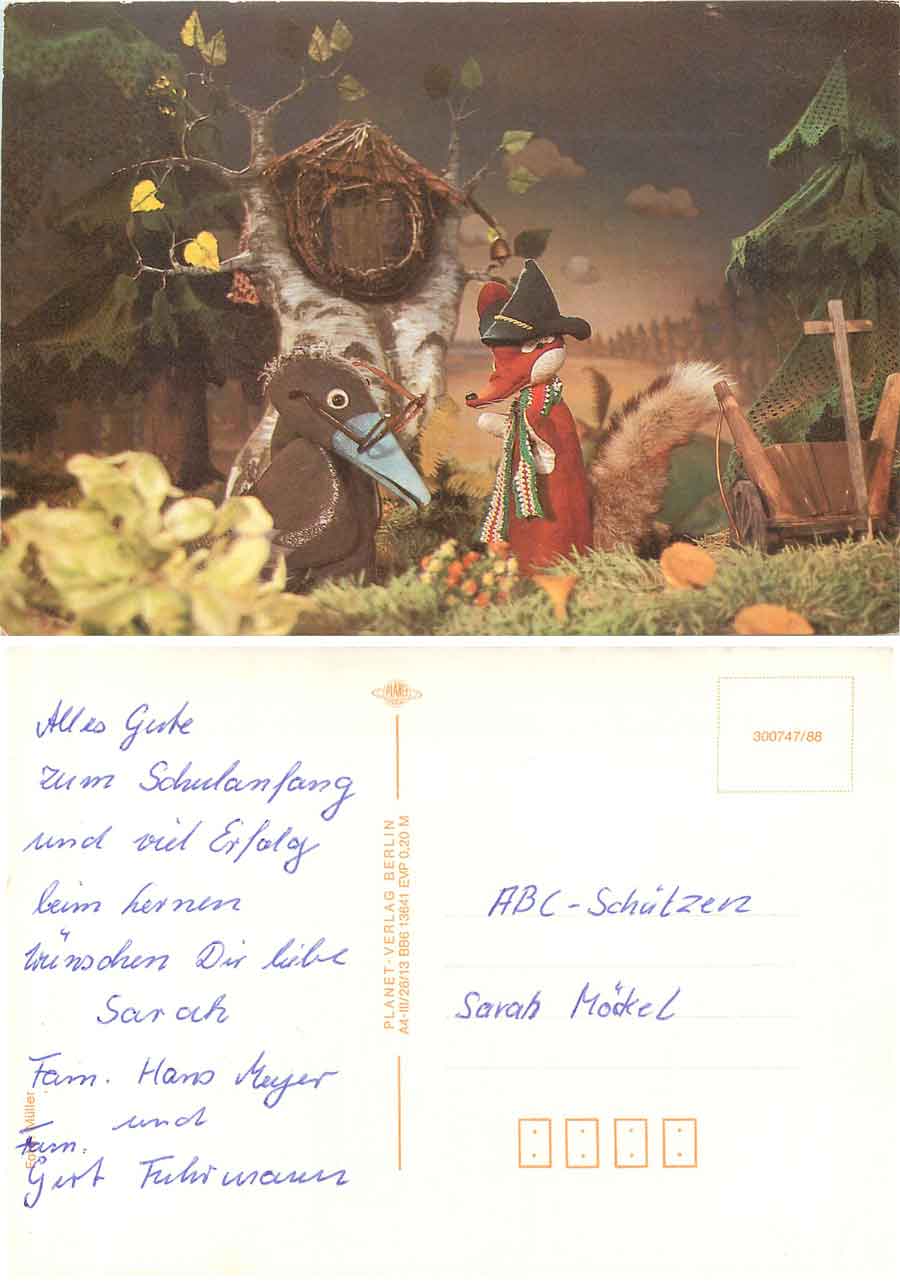 Alles Gute
zum Schulanfang
und viel Erfolg
beim Lernen
wünschen Dir liebe
Sarah
Fam. Hans Meyer
und
Fam.
Gert Fuhrmann
Müller
PLANET
PLANET-VERLAG BERLIN
A4-III/26/13 BB6 13641 EVP 0,20 M
300747/88
ABC-Schützen
Sarah Möckel